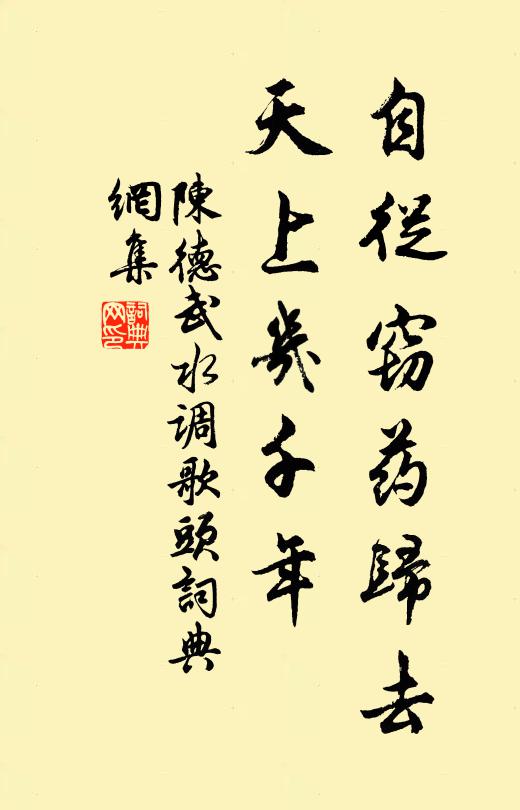 自從窃药歸去
天上幾千年
陳德武水调歌頭詞典
網集
詞典
网印